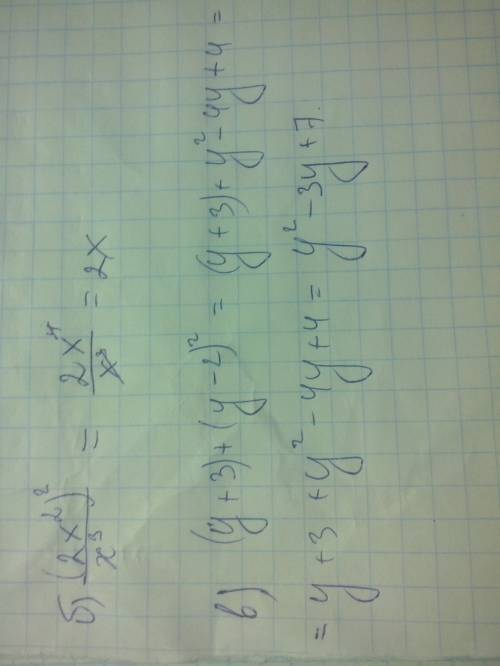 б) (2x²)²/x³ = 2x⁴/x³ = 2x
в) (y + 3) + (y - 2)² = (y + 3) + y² - 4y + 4 =
= y + 3 + y² - 4y + 4 = y² - 3y + 7.